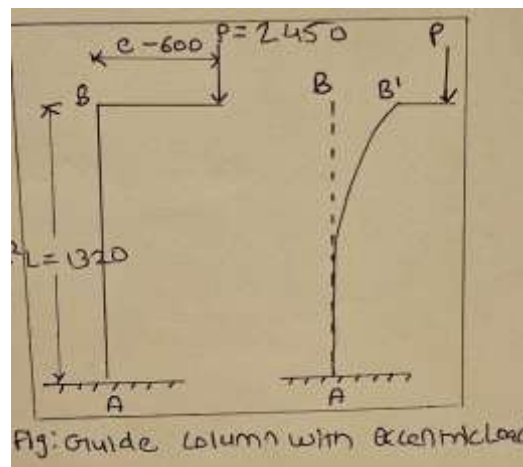 e-600 P=2450
P
B
B B'
L=1320
A
A
Fig: Guide column with eccentric Load